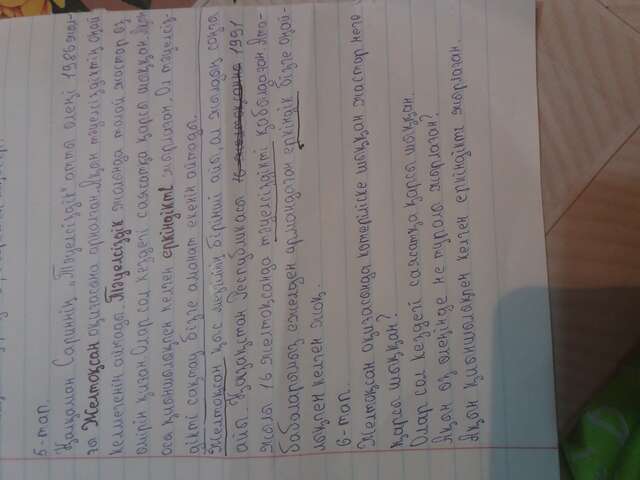 5-тап.
Қалқаман Сариннің „Тәуелсіздік" атты өлеңі 1986 жыл-
ғы Желтоқсан оқиғасына арналған. Ақын тәуелсіздіктің оңай
келмегенін айтады. Тәуелсіздік жолында талай жастар өз
өмірін қиған. Олар сол кездегі саясатқа қарсы шыққан. Ақын
осы қиыншылықпен келген еркіндікті жырлаған. Ол тәуелсіз-
дікті сақтау бізге аманат екенін айтады.
Желтоқсан қыс мезгілінің бірінші айы, ал жылдың соңғы
айы. Қазақстан Республикасы 16 желтоқсанна 1991
жылы 16 желтоқсанда тәуелсіздікті қабылдаған. Ата-
бабаларымыз ежелден армандаған еркіндік бізге оңай-
лықпен келген жоқ.
6-тап.
Желтоқсан оқиғасында көтеріліске шыққан жастар неге
қарсы шыққан?
Олар сол кездегі саясатқа қарсы шыққан.
Ақын өз өлеңінде не туралы жырлаған?
Ақын қиыншылықпен келген еркіндікті жырлаған.